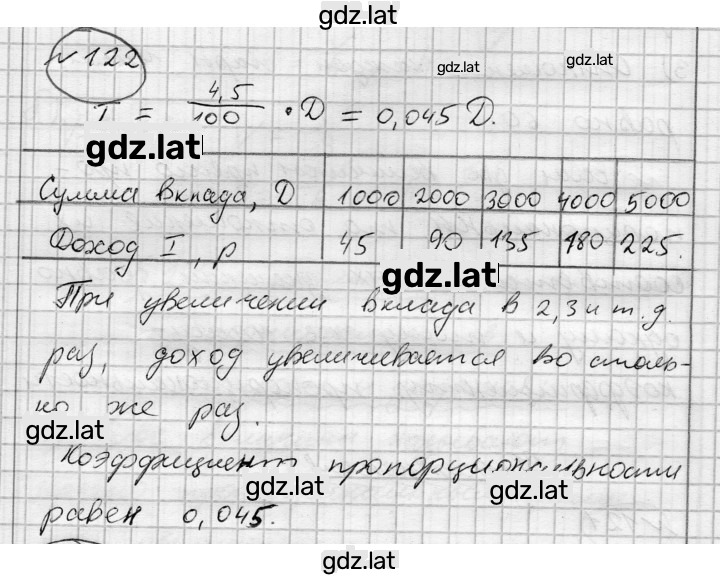 gdz.lat
№122
gdz.lat
gdz.lat
I = 4,5/100 · D = 0,045 D.
gdz.lat
Сумма вклада, D 1000 2000 3000 4000 5000
Доход I, р 45 90 135 180 225.
gdz.lat
При увеличении вклада в 2,3 и т.д.
раз, доход увеличивается во столь-
ко же раз.
gdz.lat
Коэффициент пропорциональности
gdz.lat
gdz.lat
равен 0,045.
gdz.lat